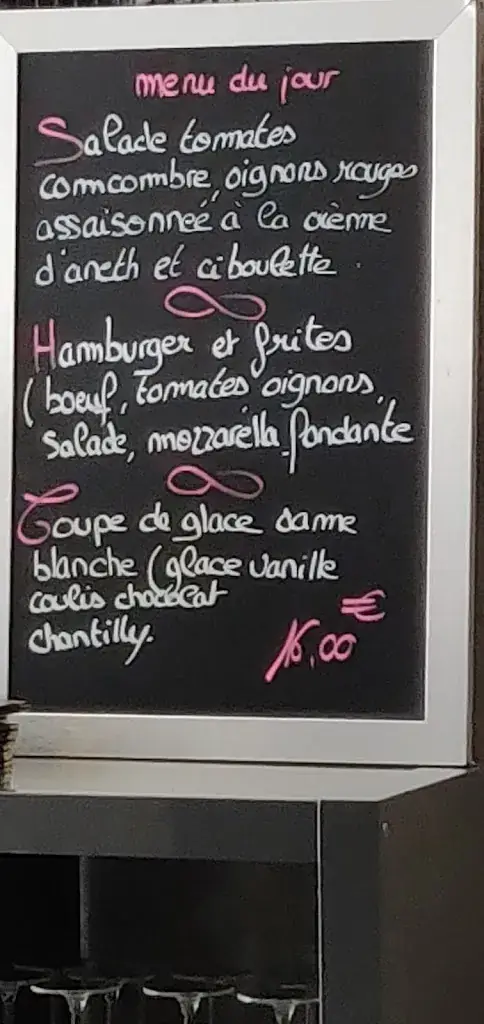 menu du jour
Salade tomates
comcombre, oignons rouges
assaisonneé à la crème
d'aneth et ciboulette.
Hamburger et frites
(boeuf, tomates oignons,
salade, mozzarella fondante
Coupe de glace dame
blanche (glace vanille
coulis chocolat
chantilly.
16,00 €